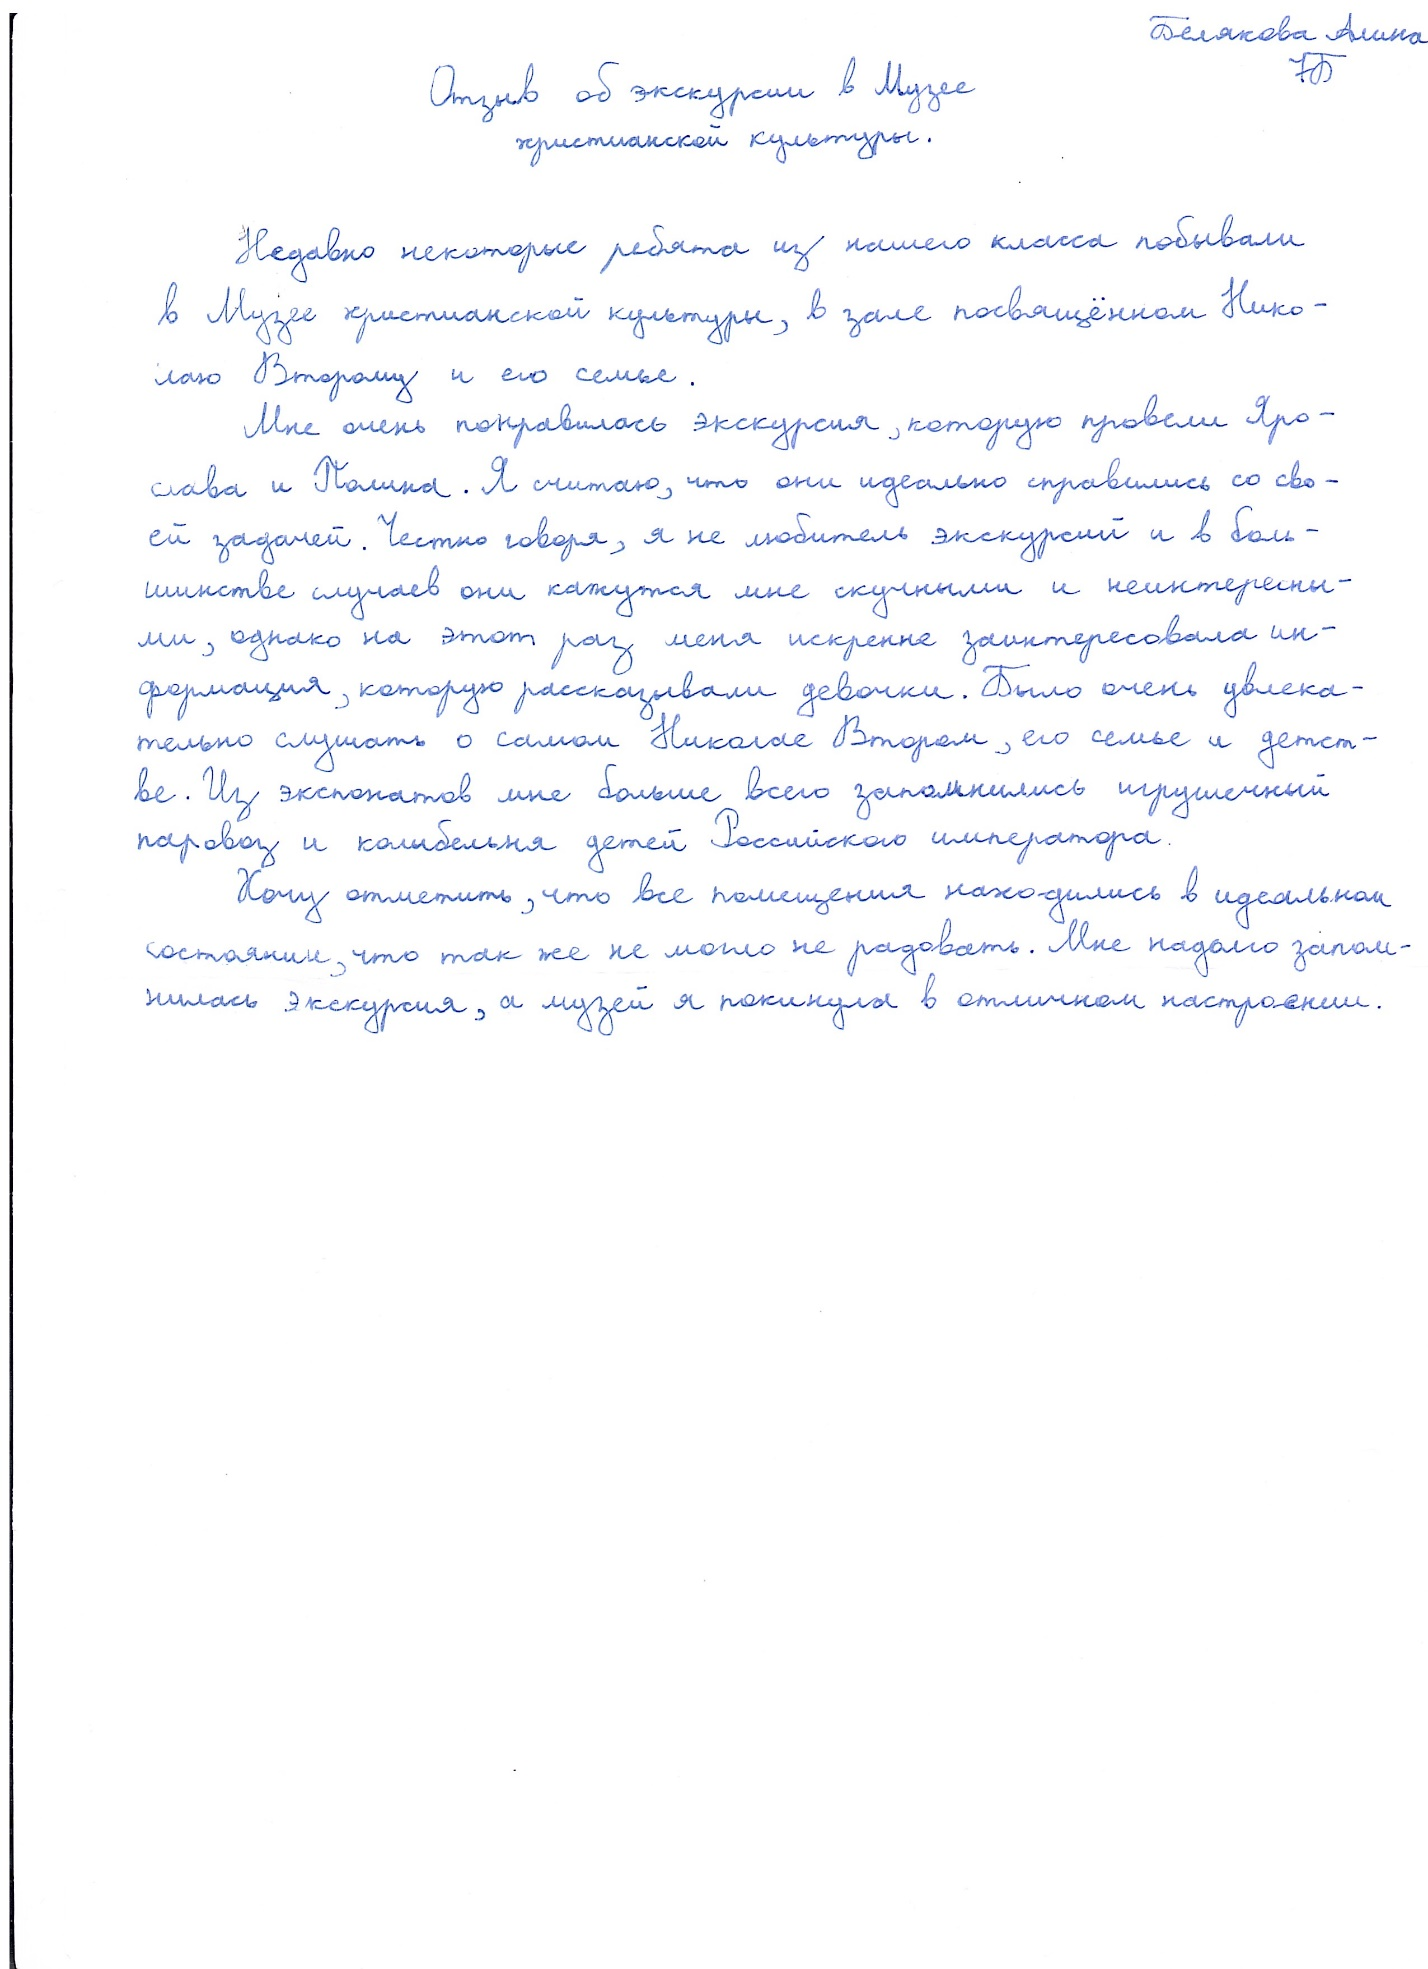 Белякова Алина
7Б
Отзыв об экскурсии в Музее
христианской культуры.
Недавно некоторые ребята из нашего класса побывали
в Музее христианской культуры, в зале посвящённом Нико-
лаю Второму и его семье.
Мне очень понравилась экскурсия, которую провели Яро-
слава и Полина. Я считаю, что они идеально справились со сво-
ей задачей. Честно говоря, я не любитель экскурсий и в боль-
шинстве случаев они кажутся мне скучными и неинтересны-
ми, однако на этот раз меня искренне заинтересовала ин-
формация, которую рассказывали девочки. Было очень увлека-
тельно слушать о самом Николае Втором, его семье и детст-
ве. Из экспонатов мне больше всего запомнились игрушечный
паровоз и колыбельня детей Российского императора.
Хочу отметить, что все помещения находились в идеальном
состоянии, что так же не могло не радовать. Мне надолго запом-
нилась экскурсия, а музей я покинула в отличном настроении.